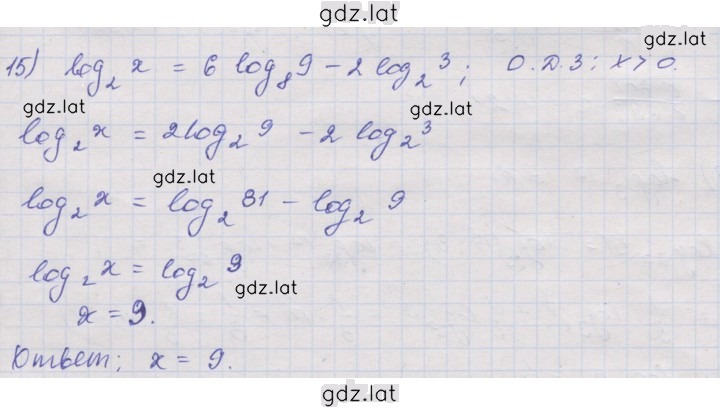 gdz.lat
gdz.lat
15) log₂ x = 6 log₈ 9 − 2 log₂ 3; О.Д.З: x > 0.
gdz.lat
gdz.lat
log₂ x = 2 log₂ 9 − 2 log₂ 3
gdz.lat
log₂ x = log₂ 81 − log₂ 9
log₂ x = log₂ 9
gdz.lat
x = 9.
Ответ; x = 9.
gdz.lat